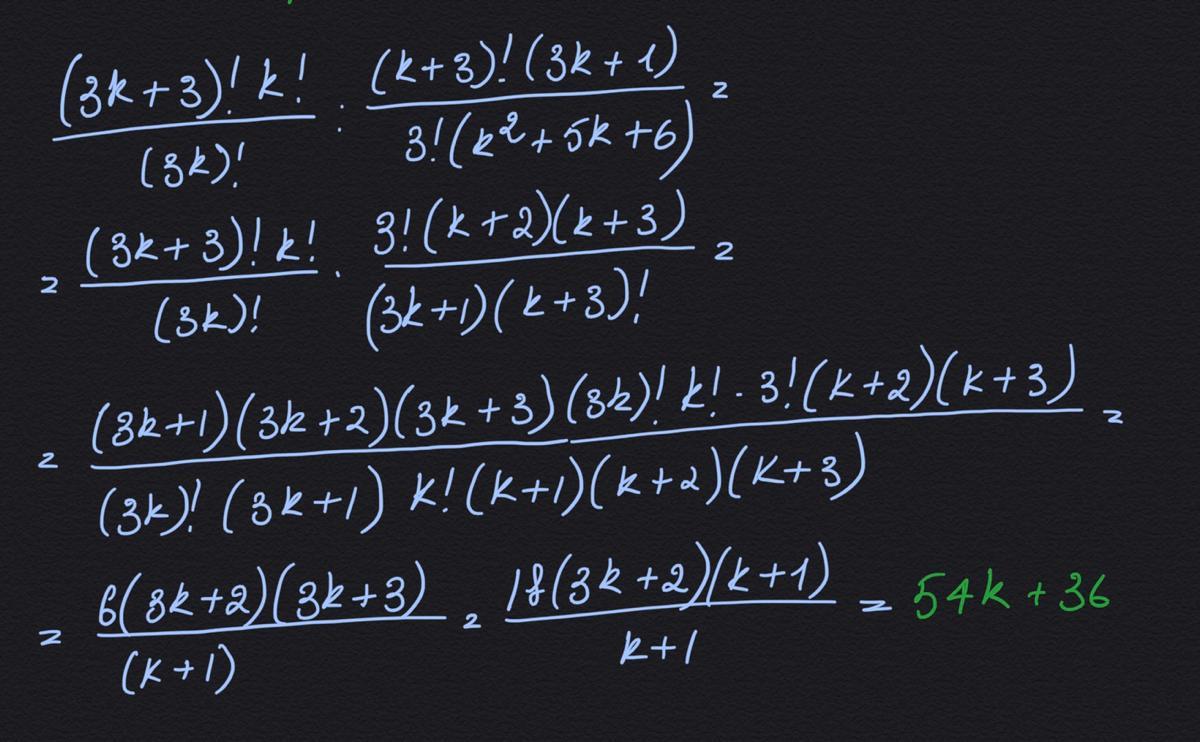 (3k+3)! k! / (3k)! : (k+3)! (3k+1) / 3! (k²+5k+6) =
= (3k+3)! k! / (3k)! · 3! (k+2)(k+3) / (3k+1)(k+3)! =
= (3k+1)(3k+2)(3k+3)(3k)! k! · 3! (k+2)(k+3) / (3k)! (3k+1) k! (k+1)(k+2)(k+3) =
= 6(3k+2)(3k+3) / (k+1) = 18(3k+2)(k+1) / k+1 = 54k+36